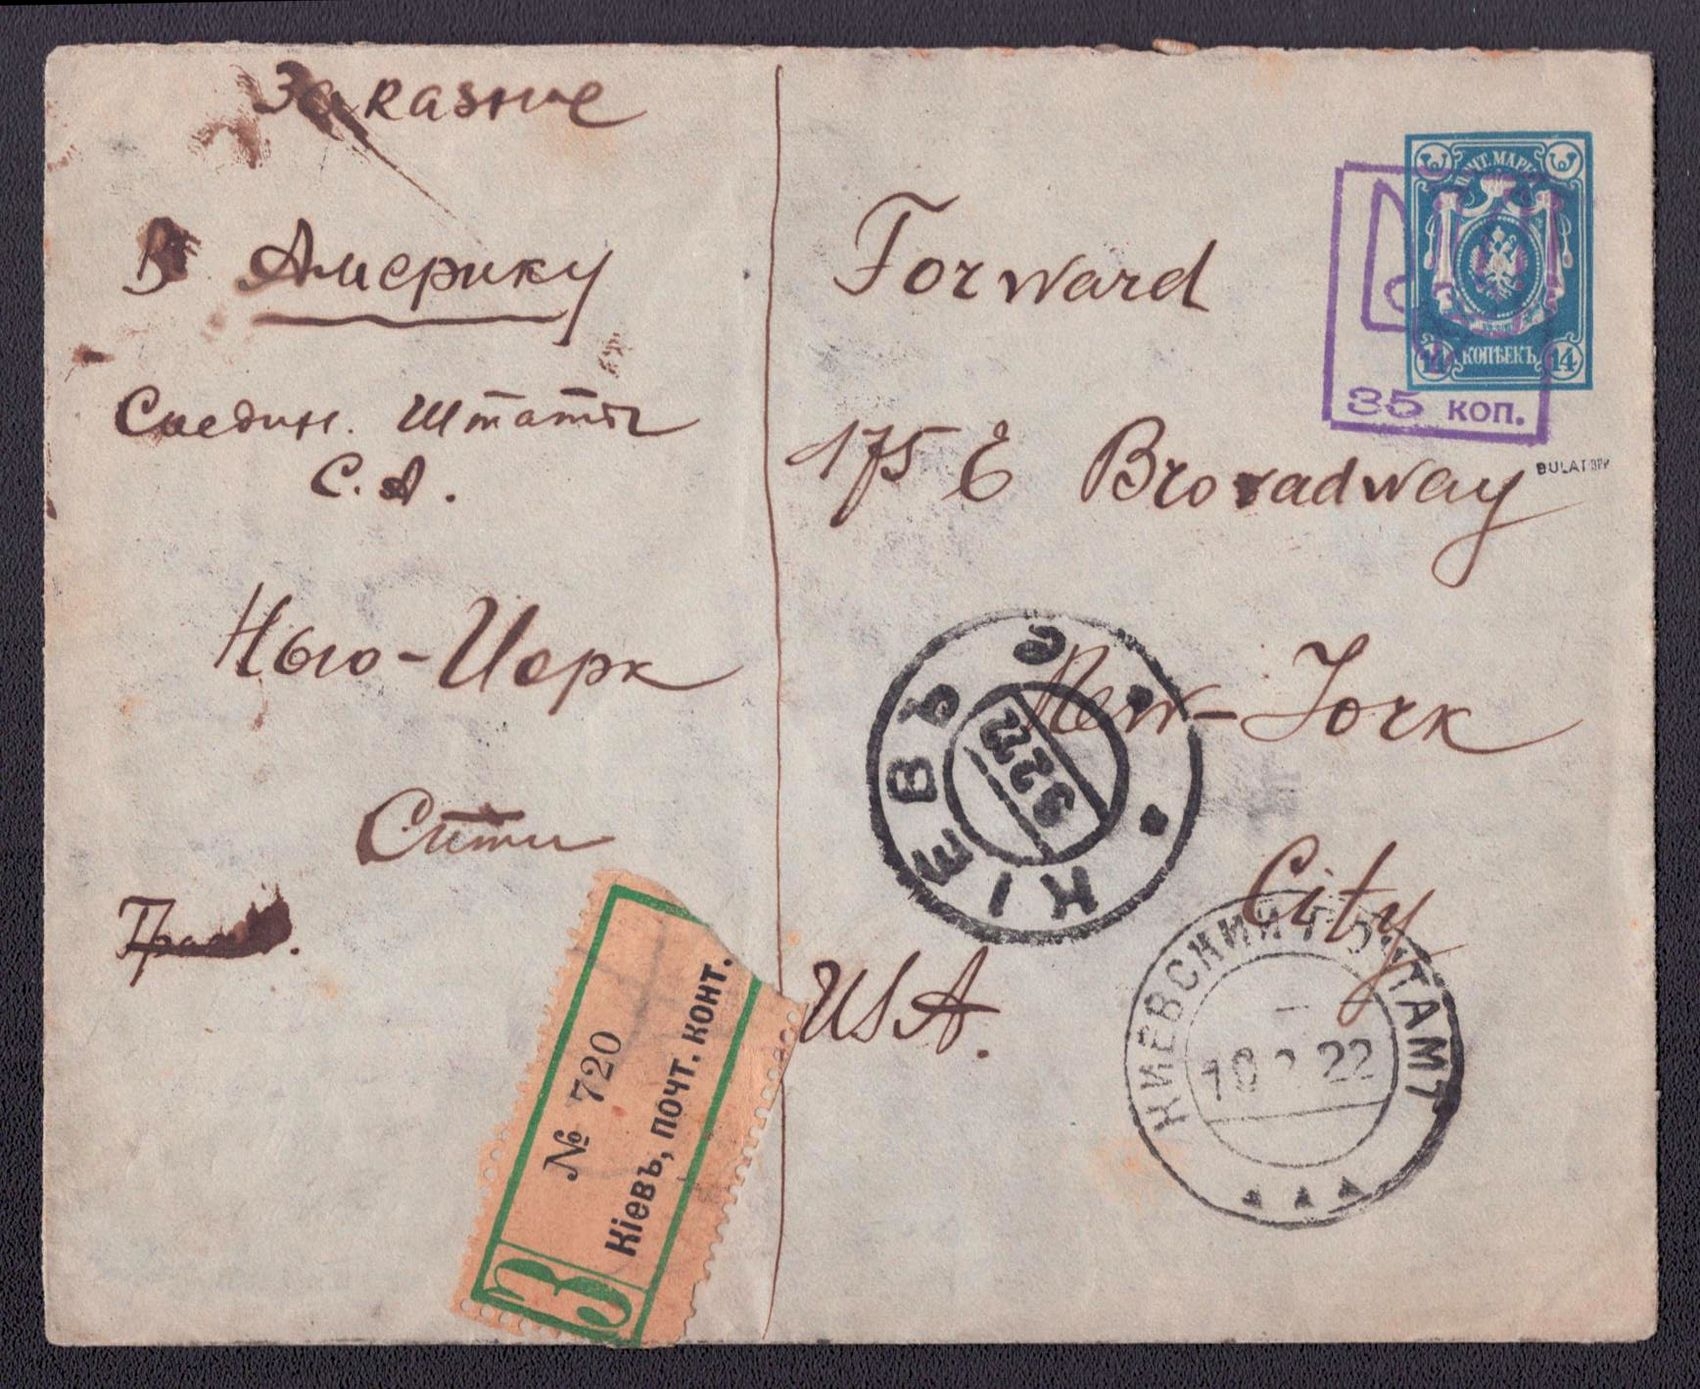 Заказное
В Америку
Соедин. Штаты
С. А.
Нью-Иорк
Сити
Forward
175 E Broadway
New-York
City
USA.
ПОЧТ. МАРКА
14 КОПѢЕКЪ 14
35 коп.
BULAT
КІЕВЪ
9 2 22
КИЕВСКИЙ ПОЧТАМТ
22
З
№ 720
Кіевъ, почт. конт.